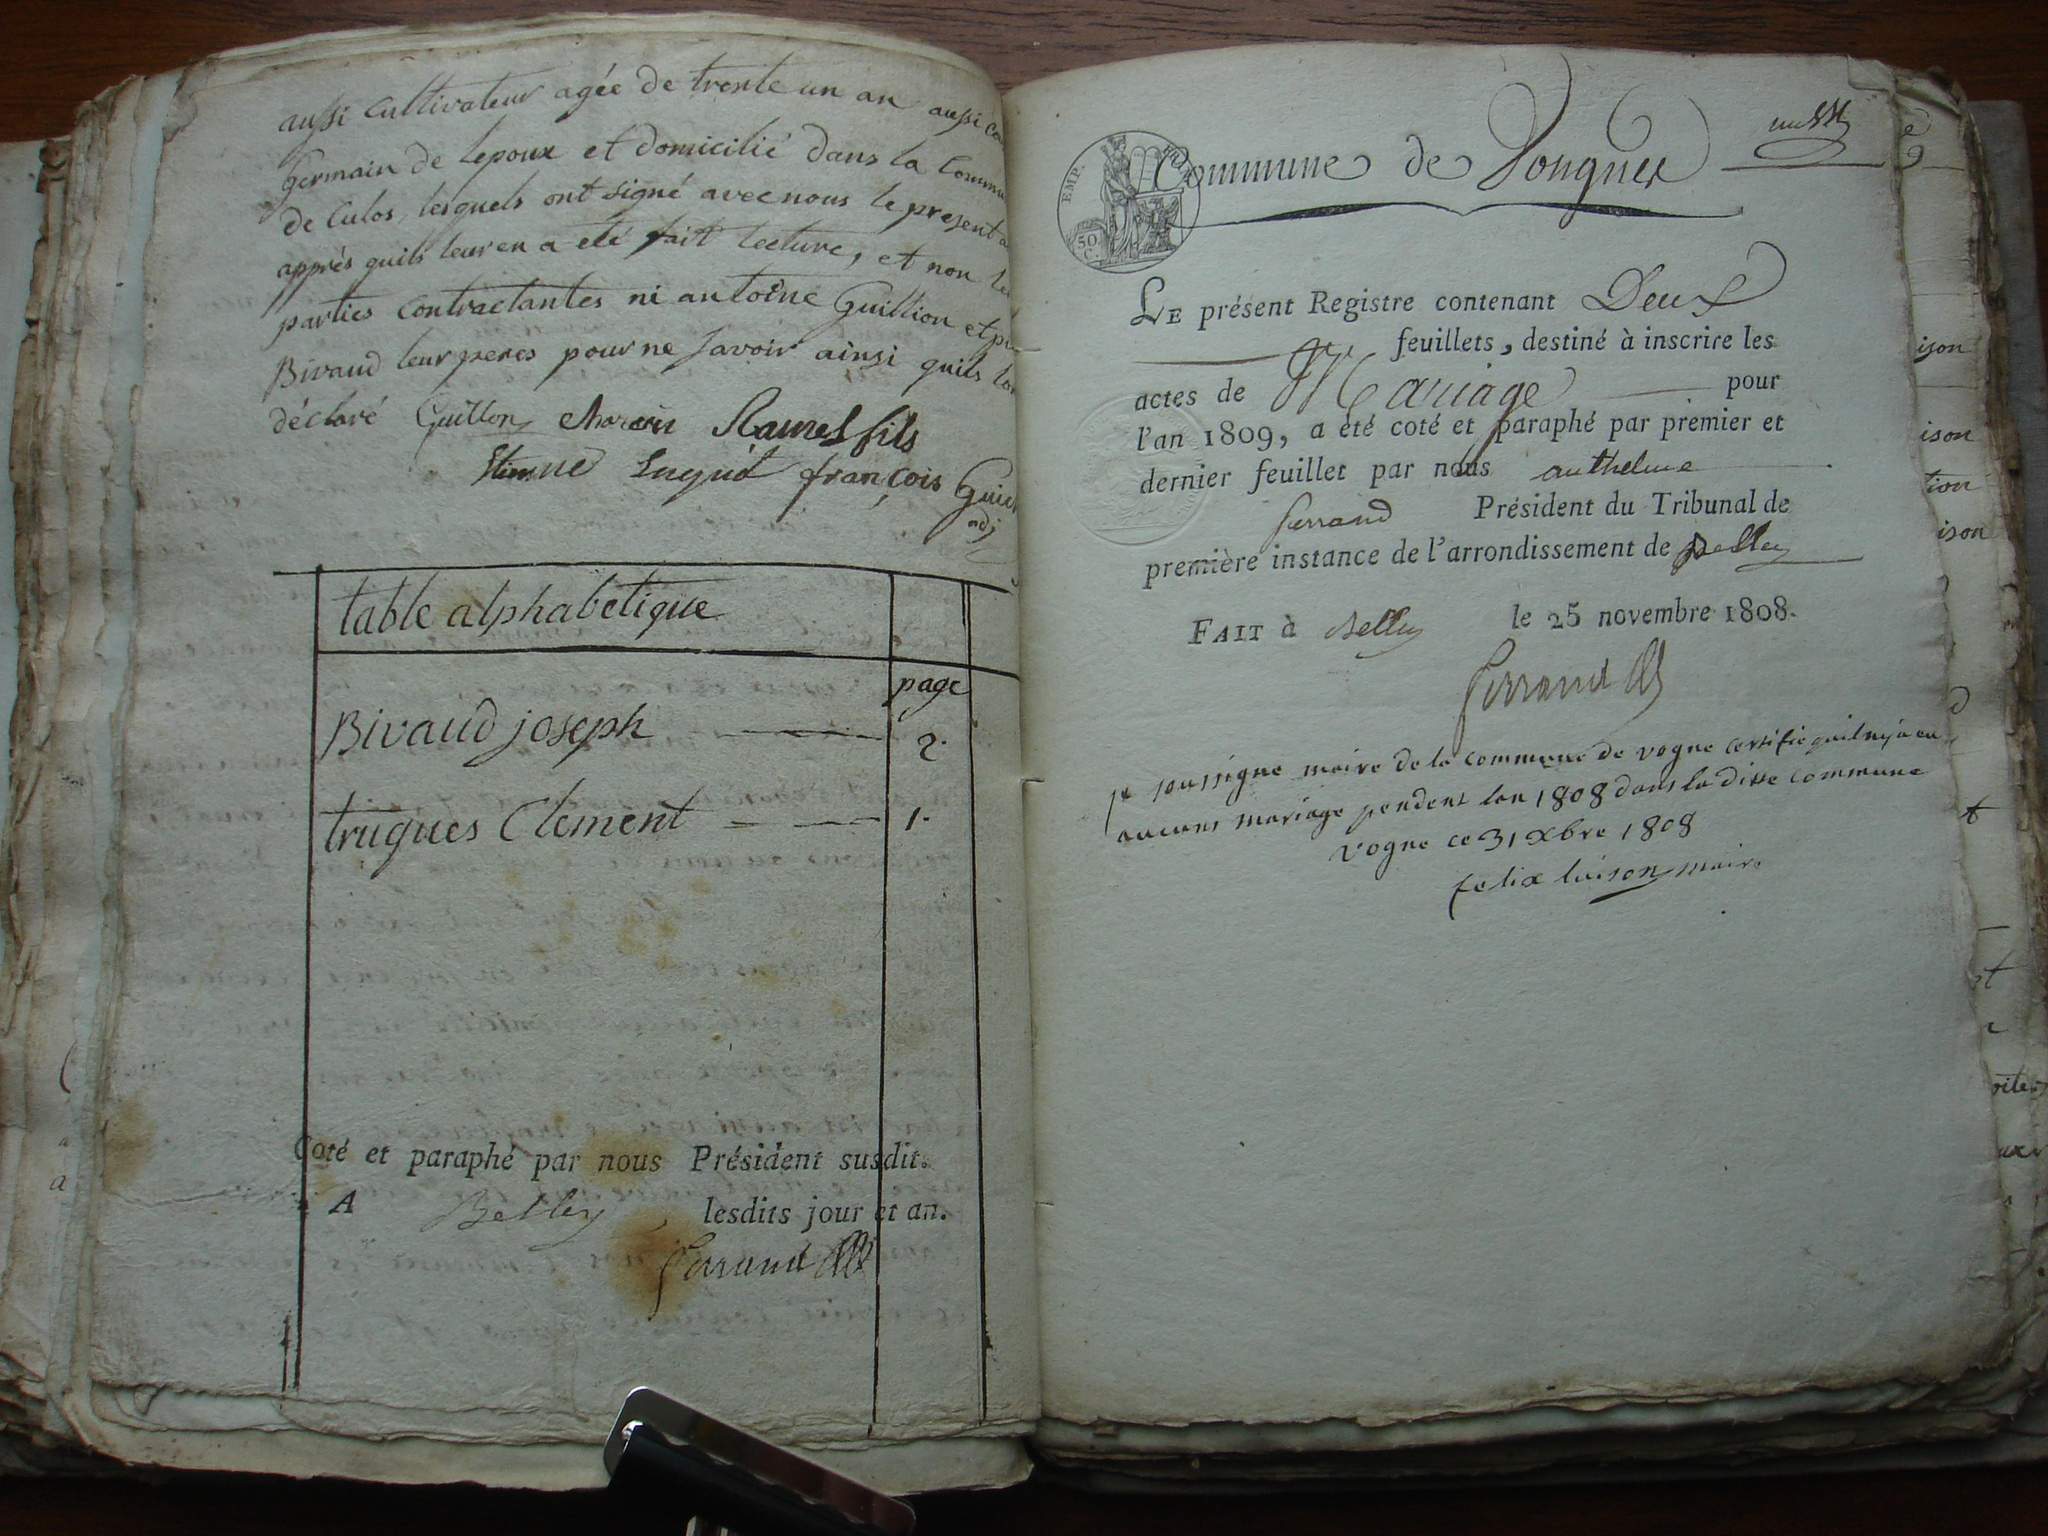 aussi cultivateur agée de trente un an aussi
Germain de lepoux et domicilié dans la Commu
de Culos, lesquels ont signé avec nous le present
apprés quils leur en a été fait lecture, et non
parties contractantes ni antoine Guillion et
Bivaud leur peres pour ne savoir ainsi quils
déclaré Guillon Ramel fils
François
adj
table alphabetique
page
Bivaud joseph 2.
trugues Clement 1.
Coté et paraphé par nous Président susdit.
A Belley, lesdits jour et an.
Ferrand
EMP.
50 C.
Commune de Vongnes
LE présent Registre contenant Deux
feuillets, destiné à inscrire les
actes de Mariage pour
l'an 1809, a été coté et paraphé par premier et
dernier feuillet par nous anthelme
ferrand Président du Tribunal de
première instance de l'arrondissement de Belley
FAIT à Belley le 25 novembre 1808.
Ferrand
je soussigne maire de la commune de vogne certifie quil ny a eu
aucuns mariage pendent lan 1808 dans la ditte commune
vogne ce 31 xbre 1808
felix luison maire
ison
ison
tion
ison